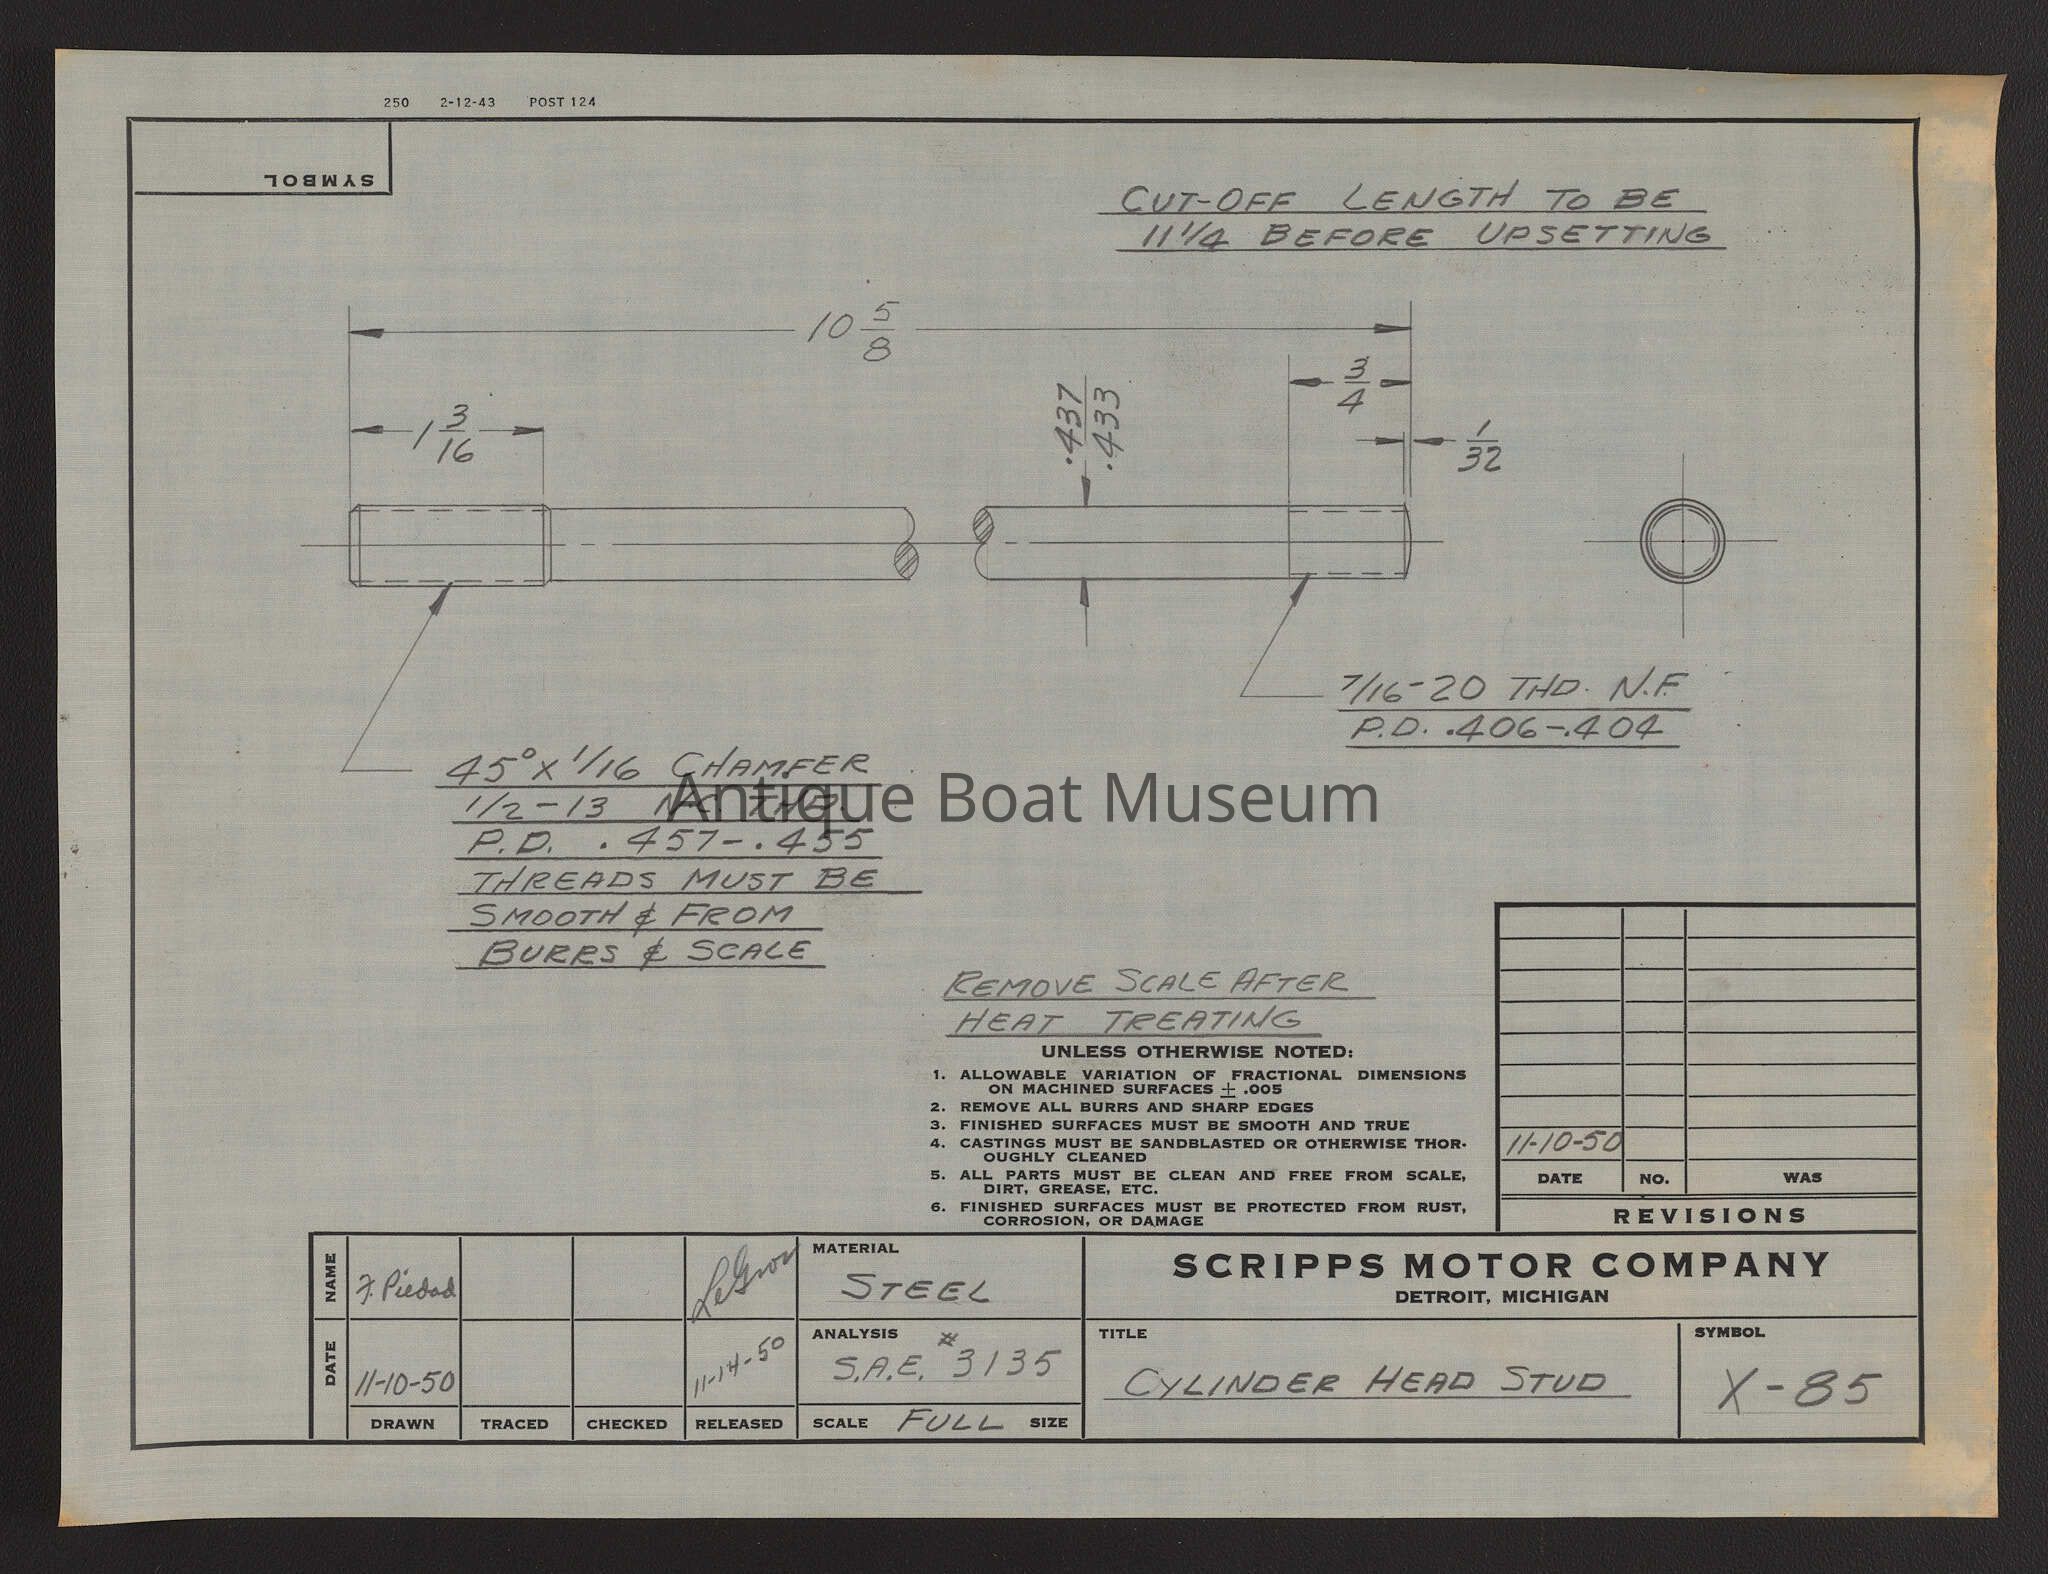 250 2-12-43 POST 124
SYMBOL
CUT-OFF LENGTH TO BE
11 1/4 BEFORE UPSETTING
10 5/8
3/4
1 3/16
.437
.433
1/32
7/16-20 THD. N.F.
P.D. .406-.404
45° x 1/16 CHAMFER
1/2-13 N.C. THD.
P.D. .457-.455
THREADS MUST BE
SMOOTH & FROM
BURRS & SCALE
Antique Boat Museum
REMOVE SCALE AFTER
HEAT TREATING
UNLESS OTHERWISE NOTED:
1. ALLOWABLE VARIATION OF FRACTIONAL DIMENSIONS
ON MACHINED SURFACES ± .005
2. REMOVE ALL BURRS AND SHARP EDGES
3. FINISHED SURFACES MUST BE SMOOTH AND TRUE
4. CASTINGS MUST BE SANDBLASTED OR OTHERWISE THOR-
OUGHLY CLEANED
5. ALL PARTS MUST BE CLEAN AND FREE FROM SCALE,
DIRT, GREASE, ETC.
6. FINISHED SURFACES MUST BE PROTECTED FROM RUST,
CORROSION, OR DAMAGE
11-10-50
DATE NO. WAS
REVISIONS
NAME
F. Piedad
DATE
11-10-50
11-14-50
DRAWN TRACED CHECKED RELEASED
MATERIAL
STEEL
ANALYSIS
S.A.E. #3135
SCALE FULL SIZE
SCRIPPS MOTOR COMPANY
DETROIT, MICHIGAN
TITLE
CYLINDER HEAD STUD
SYMBOL
X-85